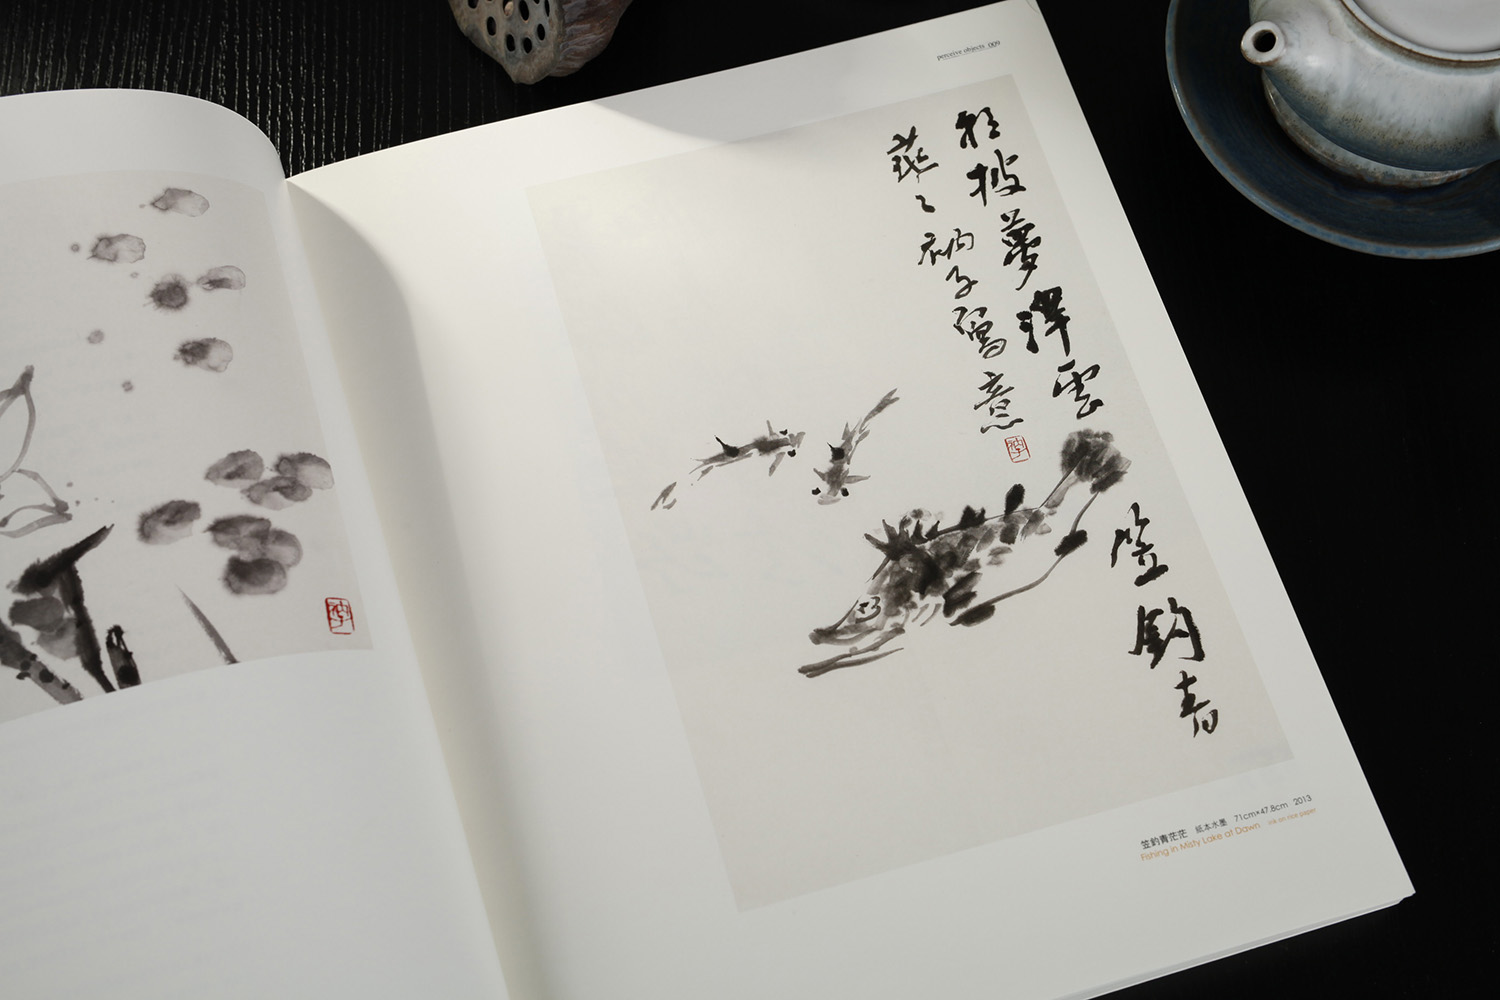 perceive objects 009
披夢澤雲
笠釣青
茫々衲子寫意
笠釣青茫茫 紙本水墨 71cm×47.8cm 2013
Fishing in Misty Lake at Dawn ink on rice paper